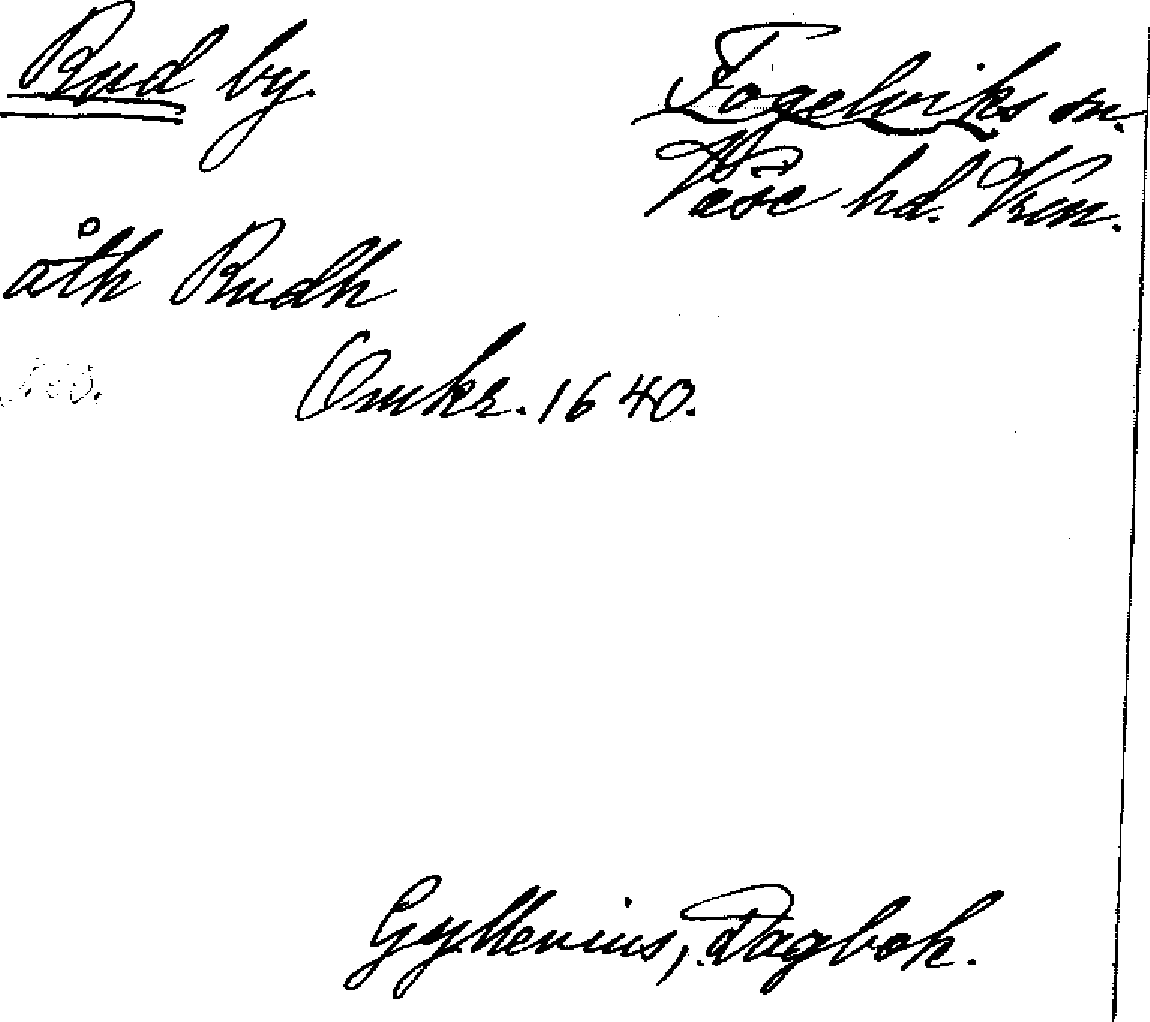 Rud by.
Fogelviks sn.
Väse hd. Vrm.
åth Rudh
Omkr. 1640.
Gyllenius, Dagbok.